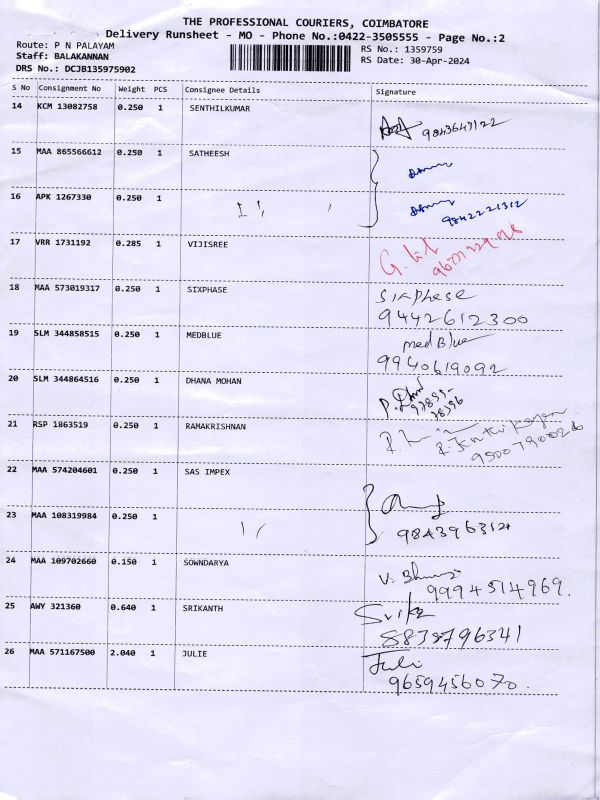 THE PROFESSIONAL COURIERS, COIMBATORE
Delivery Runsheet - MO - Phone No.:0422-3505555 - Page No.:2
Route: P N PALAYAM
Staff: BALAKANNAN
DRS No.: DCJB135975902
RS No.: 1359759
RS Date: 30-Apr-2024
S No Consignment No Weight PCS Consignee Details Signature
14 KCM 13082758 0.250 1 SENTHILKUMAR
9843647122
15 MAA 865566612 0.250 1 SATHEESH
16 APK 1267330 0.250 1
9842221312
17 VRR 1731192 0.285 1 VIJISREE
18 MAA 573019317 0.250 1 SIXPHASE Sixphase
9442612300
19 SLM 344858515 0.250 1 MEDBLUE medBlue
9940619092
20 SLM 344864516 0.250 1 DHANA MOHAN
21 RSP 1863519 0.250 1 RAMAKRISHNAN
9500790026
22 MAA 574204601 0.250 1 SAS IMPEX
23 MAA 108319984 0.250 1
24 MAA 109702660 0.150 1 SOWNDARYA
9994514969.
25 AWY 321360 0.640 1 SRIKANTH
8838796341
26 MAA 571167500 2.040 1 JULIE Juli
9659456070.